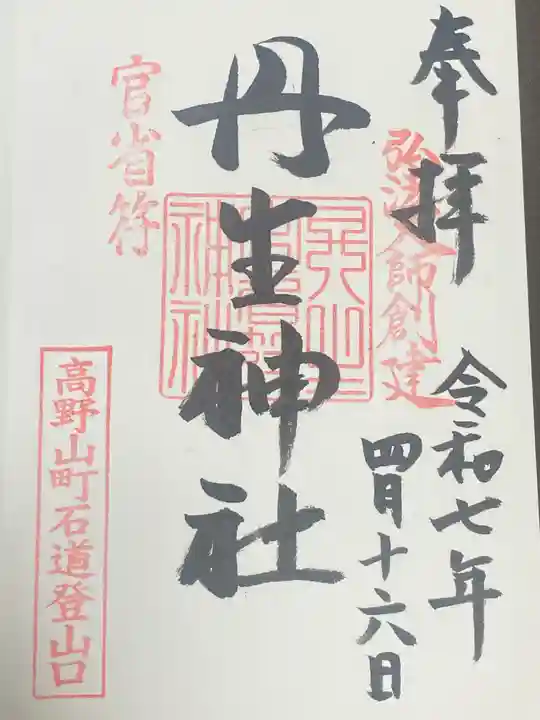 奉拝
弘法大師創建
令和七年
四月十六日
丹生神社
官省符
高野山町石道登山口